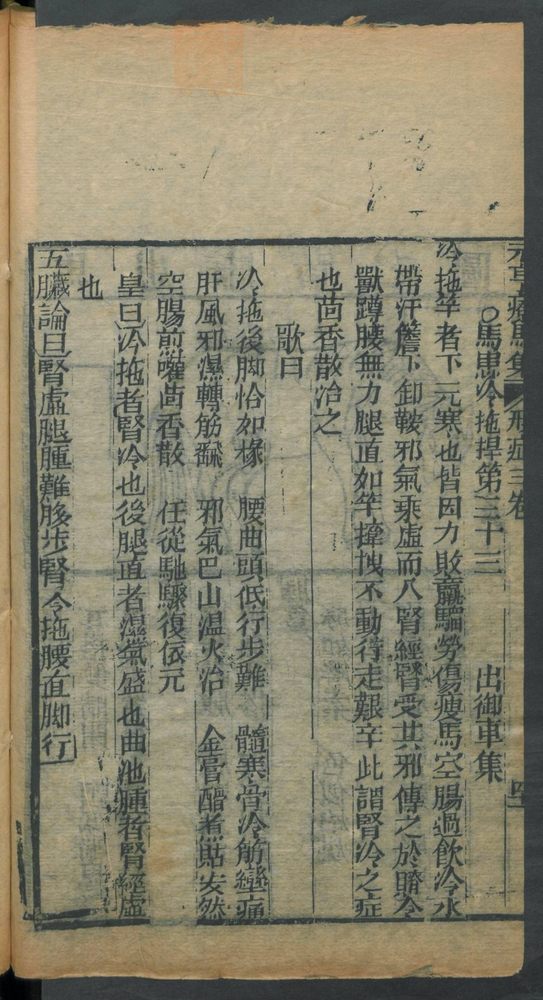 元亨療馬集 形症三卷
○馬患冷拖捍第三十三 出御車集
冷拖竿者下元寒也皆因力敗羸騮勞傷瘦馬空腸過飲冷水
帶汗簷下卸鞍邪氣乘虛而入腎經腎受其邪傳之於臍令
獸蹲腰無力腿直如竿 拽不動行走艱辛此謂腎冷之症
也茴香散治之
歌曰
冷拖後脚恰如椽 腰曲頭低行步難 髓寒骨冷筋攣痛
肝風邪濕轉筋翻 邪氣巴山温火治 金膏醋煮貼安然
空腸煎嚾茴香散 任從馳驟復依元
皇曰冷拖者腎冷也後腿直者濕氣盛也曲池腫者腎經虛
也
五臟論曰腎虛腿腫難移步腎冷拖腰直脚行